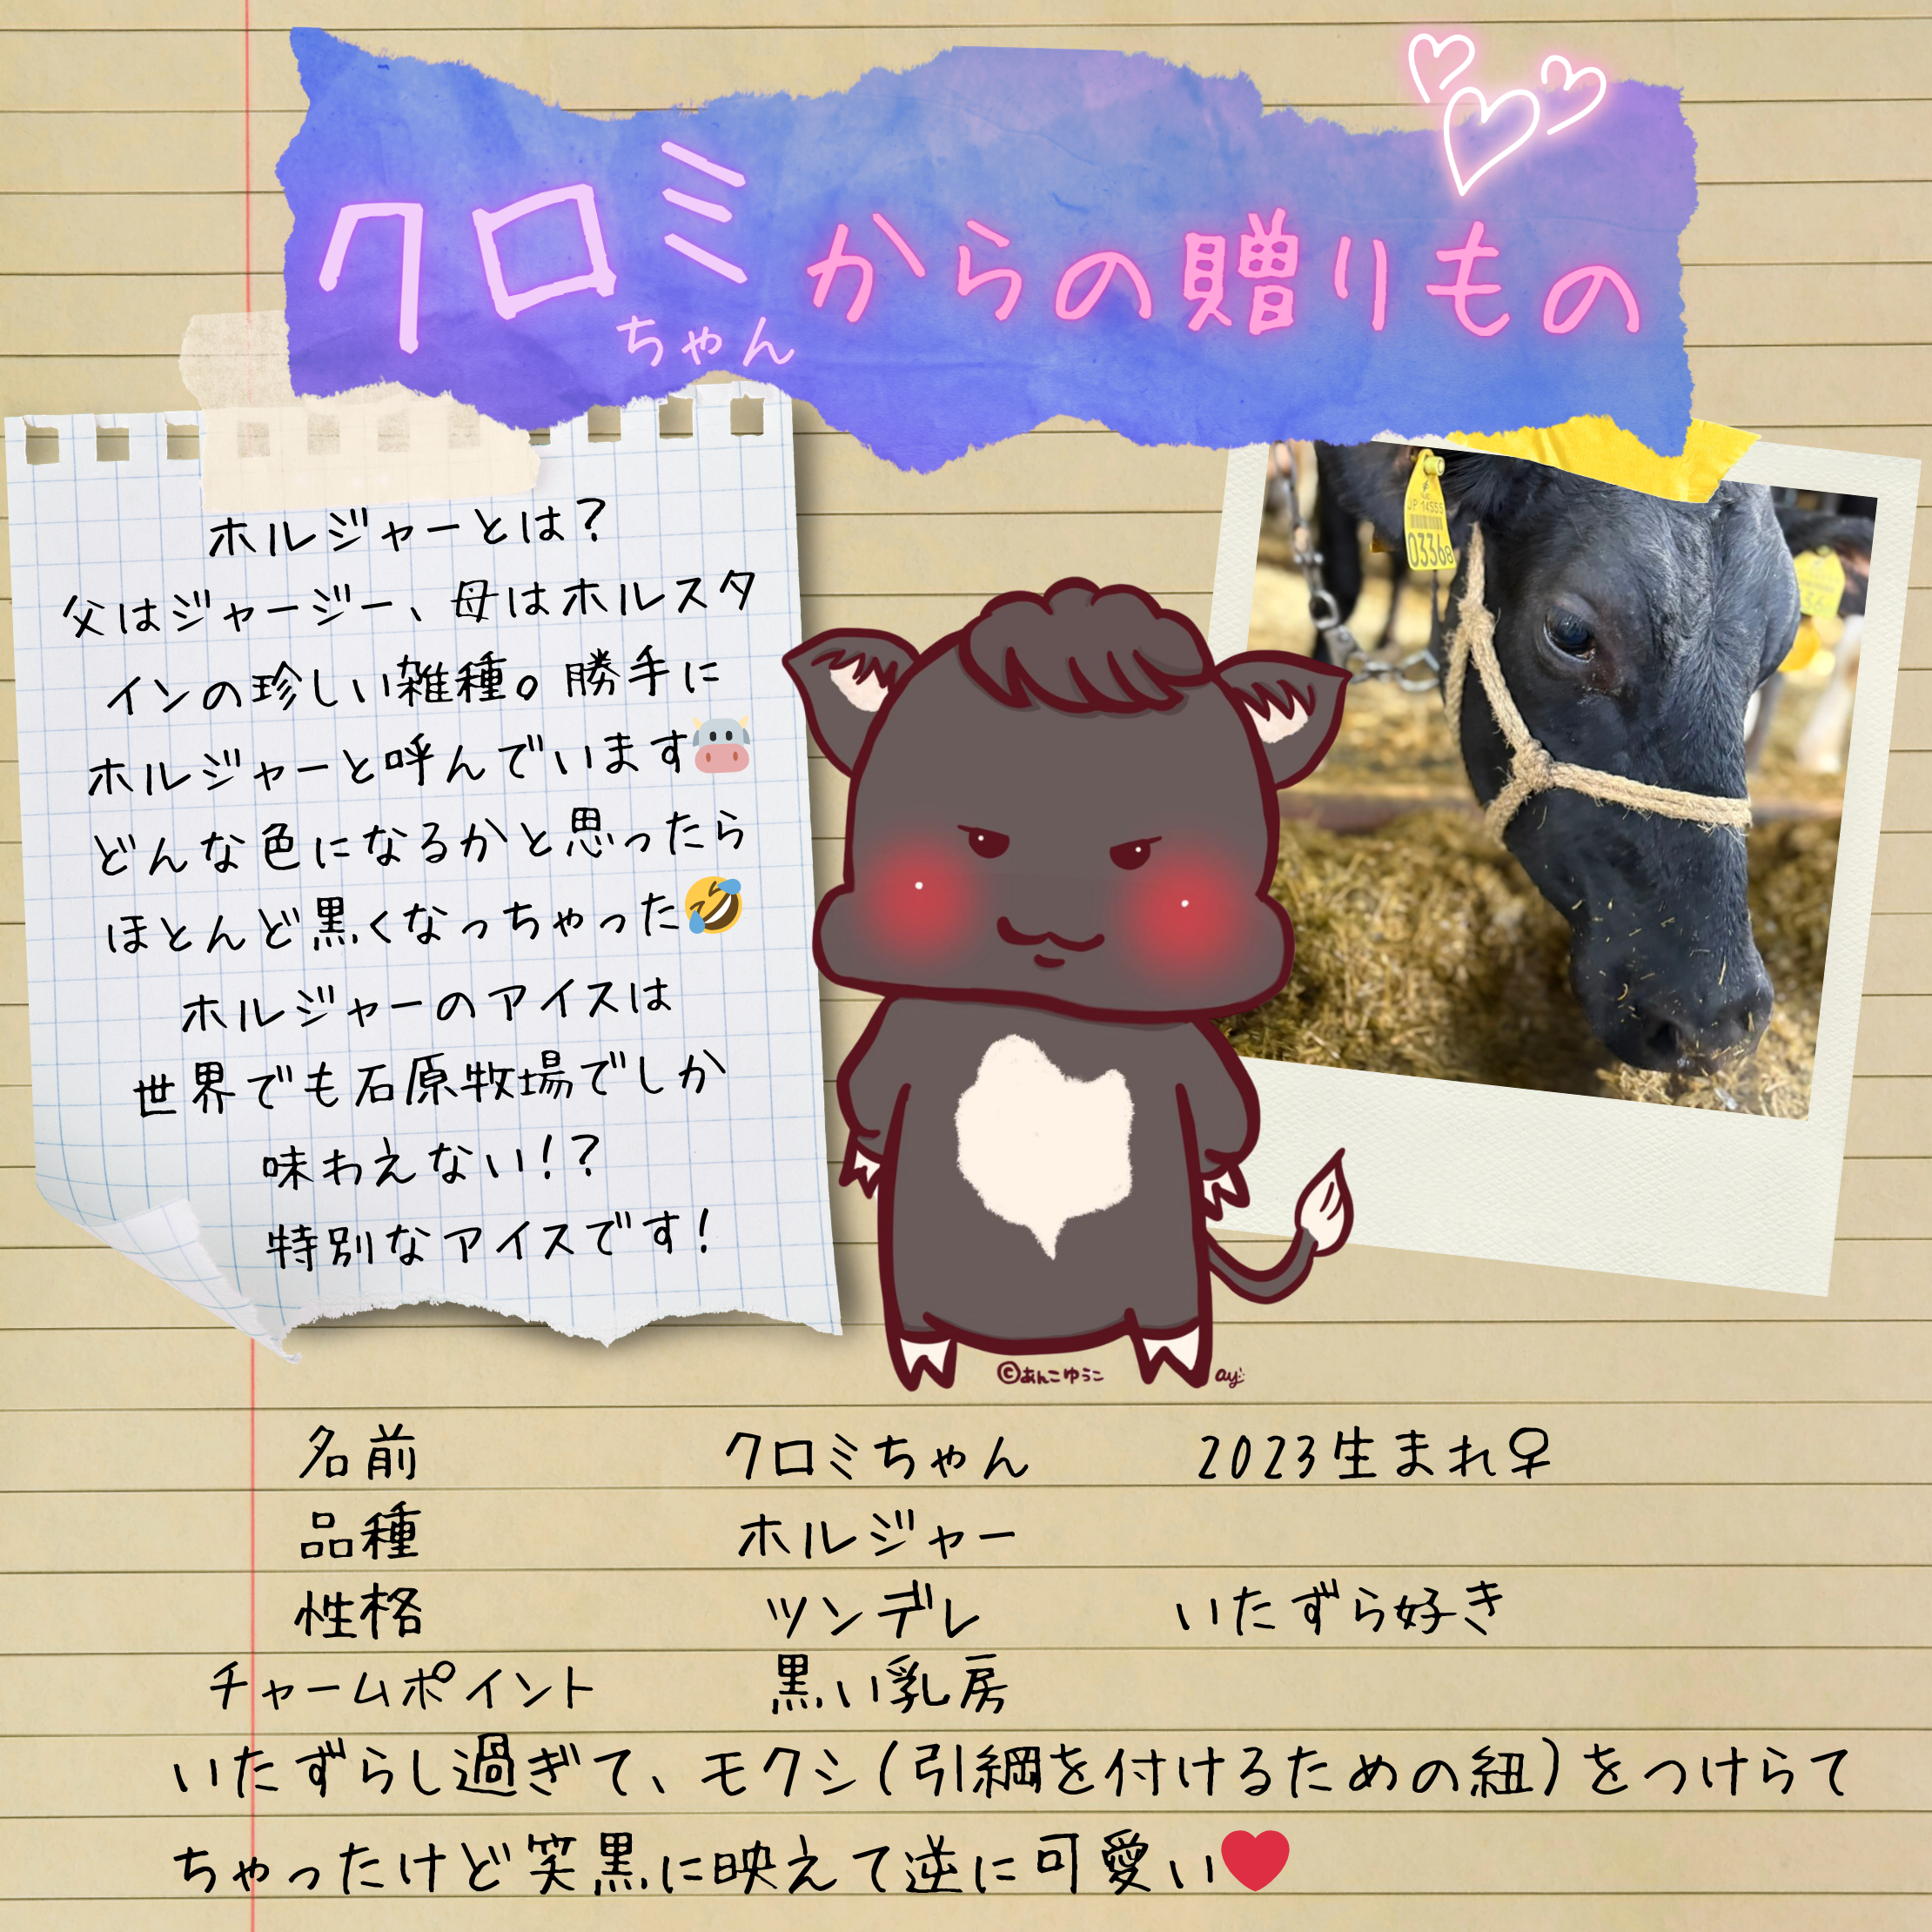 クロミちゃんからの贈りもの
ホルジャーとは？
父はジャージー、母はホルスタ
インの珍しい雑種。勝手に
ホルジャーと呼んでいます🐮
どんな色になるかと思ったら
ほとんど黒くなっちゃった🤣
ホルジャーのアイスは
世界でも石原牧場でしか
味わえない！？
特別なアイスです！
JP 14555
03368
©あんこゆうこ
ay
名前 クロミちゃん 2023生まれ♀
品種 ホルジャー
性格 ツンデレ いたずら好き
チャームポイント 黒い乳房
いたずらし過ぎて、モクシ（引綱を付けるための紐）をつけられて
ちゃったけど笑黒に映えて逆に可愛い❤